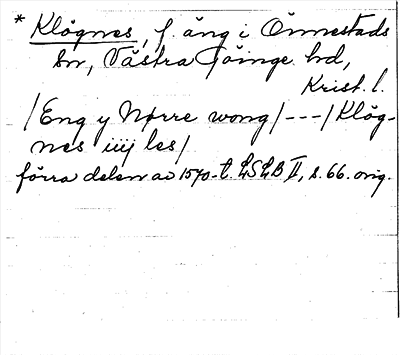 * Klögnes, f. äng i Önnestads
sn, Västra Göinge hd,
Krist. l.
/Eng y Nørre wong/---/Klög-
nes iiij les/
förra delen av 1570-t. LSLB II, s. 66. orig.